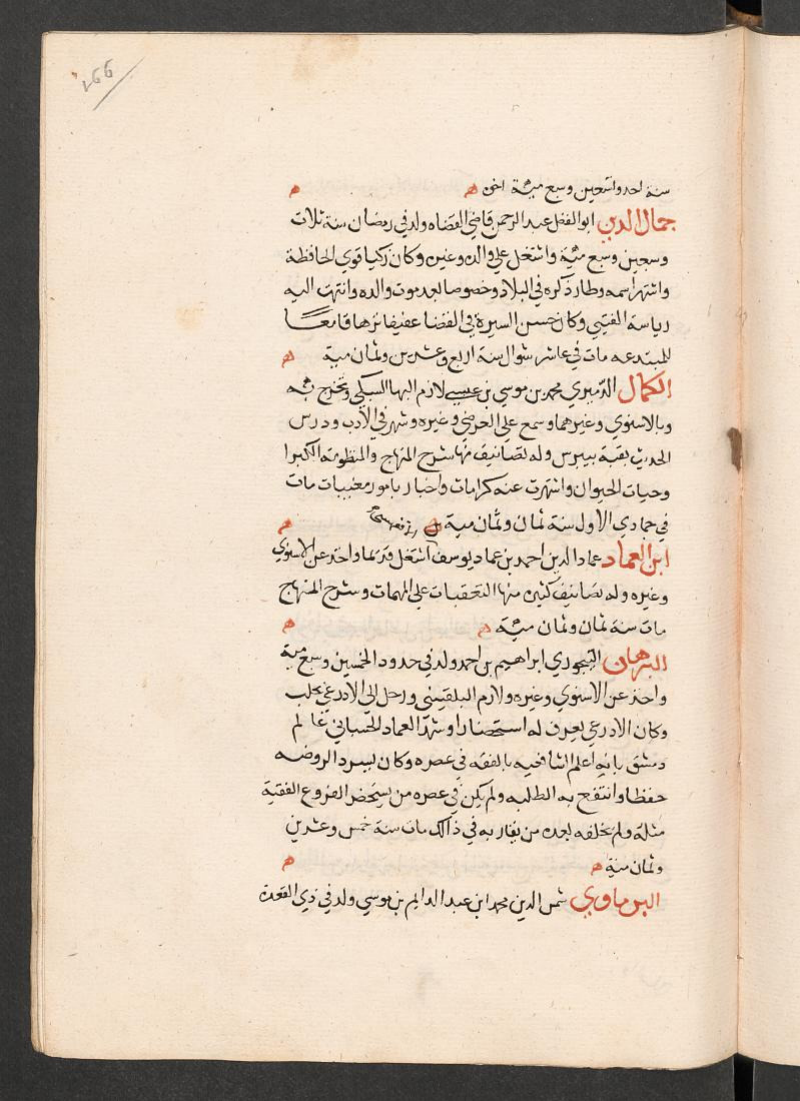 266
سنة احد وتسعين وسبع مئة اخوه ه ه
جمال الدين ابو الفضل عبد الرحمن قاضي القضاه ولد في رمضان سنة ثلاث
وستين وسبع مئة واشتغل علي والده وغيره وكان ذكيا قوي الحافظة
واشتهر اسمه وطار ذكره في البلاد وخصوصا بعد موت والده وانتهت اليه
رياسة الفتيي وكان حسن السيرة في القضا عفيفا نزها قامعا
للمبتدعه مات في عاشر شوال سنة اربع وعشرين وثمان مية ه
الكمال الدميري محمد بن موسي بن عيسي لازم البها السبكي وتخرج به
وبالاسنوي وغيرهما وسمع علي العرضي وغيره وشهر في الأدب ودرس
الحديث بقبة بيبرس وله تصانيف منها شرح المنهاج والمنظومة الكبرا
وحيات الحيوان واشتهرت عنه كرامات واخبار بامور مغيبات مات
في جمادي الاول سنة ثمان وثمان مية ه
ابن العماد عماد الدين احمد بن عماد يوسف اشتغل قديما واخذ عن الاسنوي
وغيره وله تصانيف كثيره منها التعقبات علي المهمات وشرح المنهاج
مات سنة ثمان وثمان مئة ه ه
البرهان البيجوري ابراهيم بن احمد ولد في حدود الخمسين وسبع مية
واخذ عن الاسنوي وغيره ولازم البلقيني ورحل الي الاذرعي بحلب
وكان الاذرعي يعترف له استحضارا وشهد العماد الحسباني عالم
دمشق بانه اعلم الشافعيه بالفقه في عصره وكان يسرد الروضه
حفظا وانتفع به الطلبه ولم يكن في عصره من يستحضر الفروع الفقهية
مثله ولم يخلفه بعده من يقاربه في ذالك مات سنة خمس وعشرين
وثمان مئة ه ه
البرماوي شمس الدين محمد ابن عبد الدايم بن موسي ولد في ذي القعدة